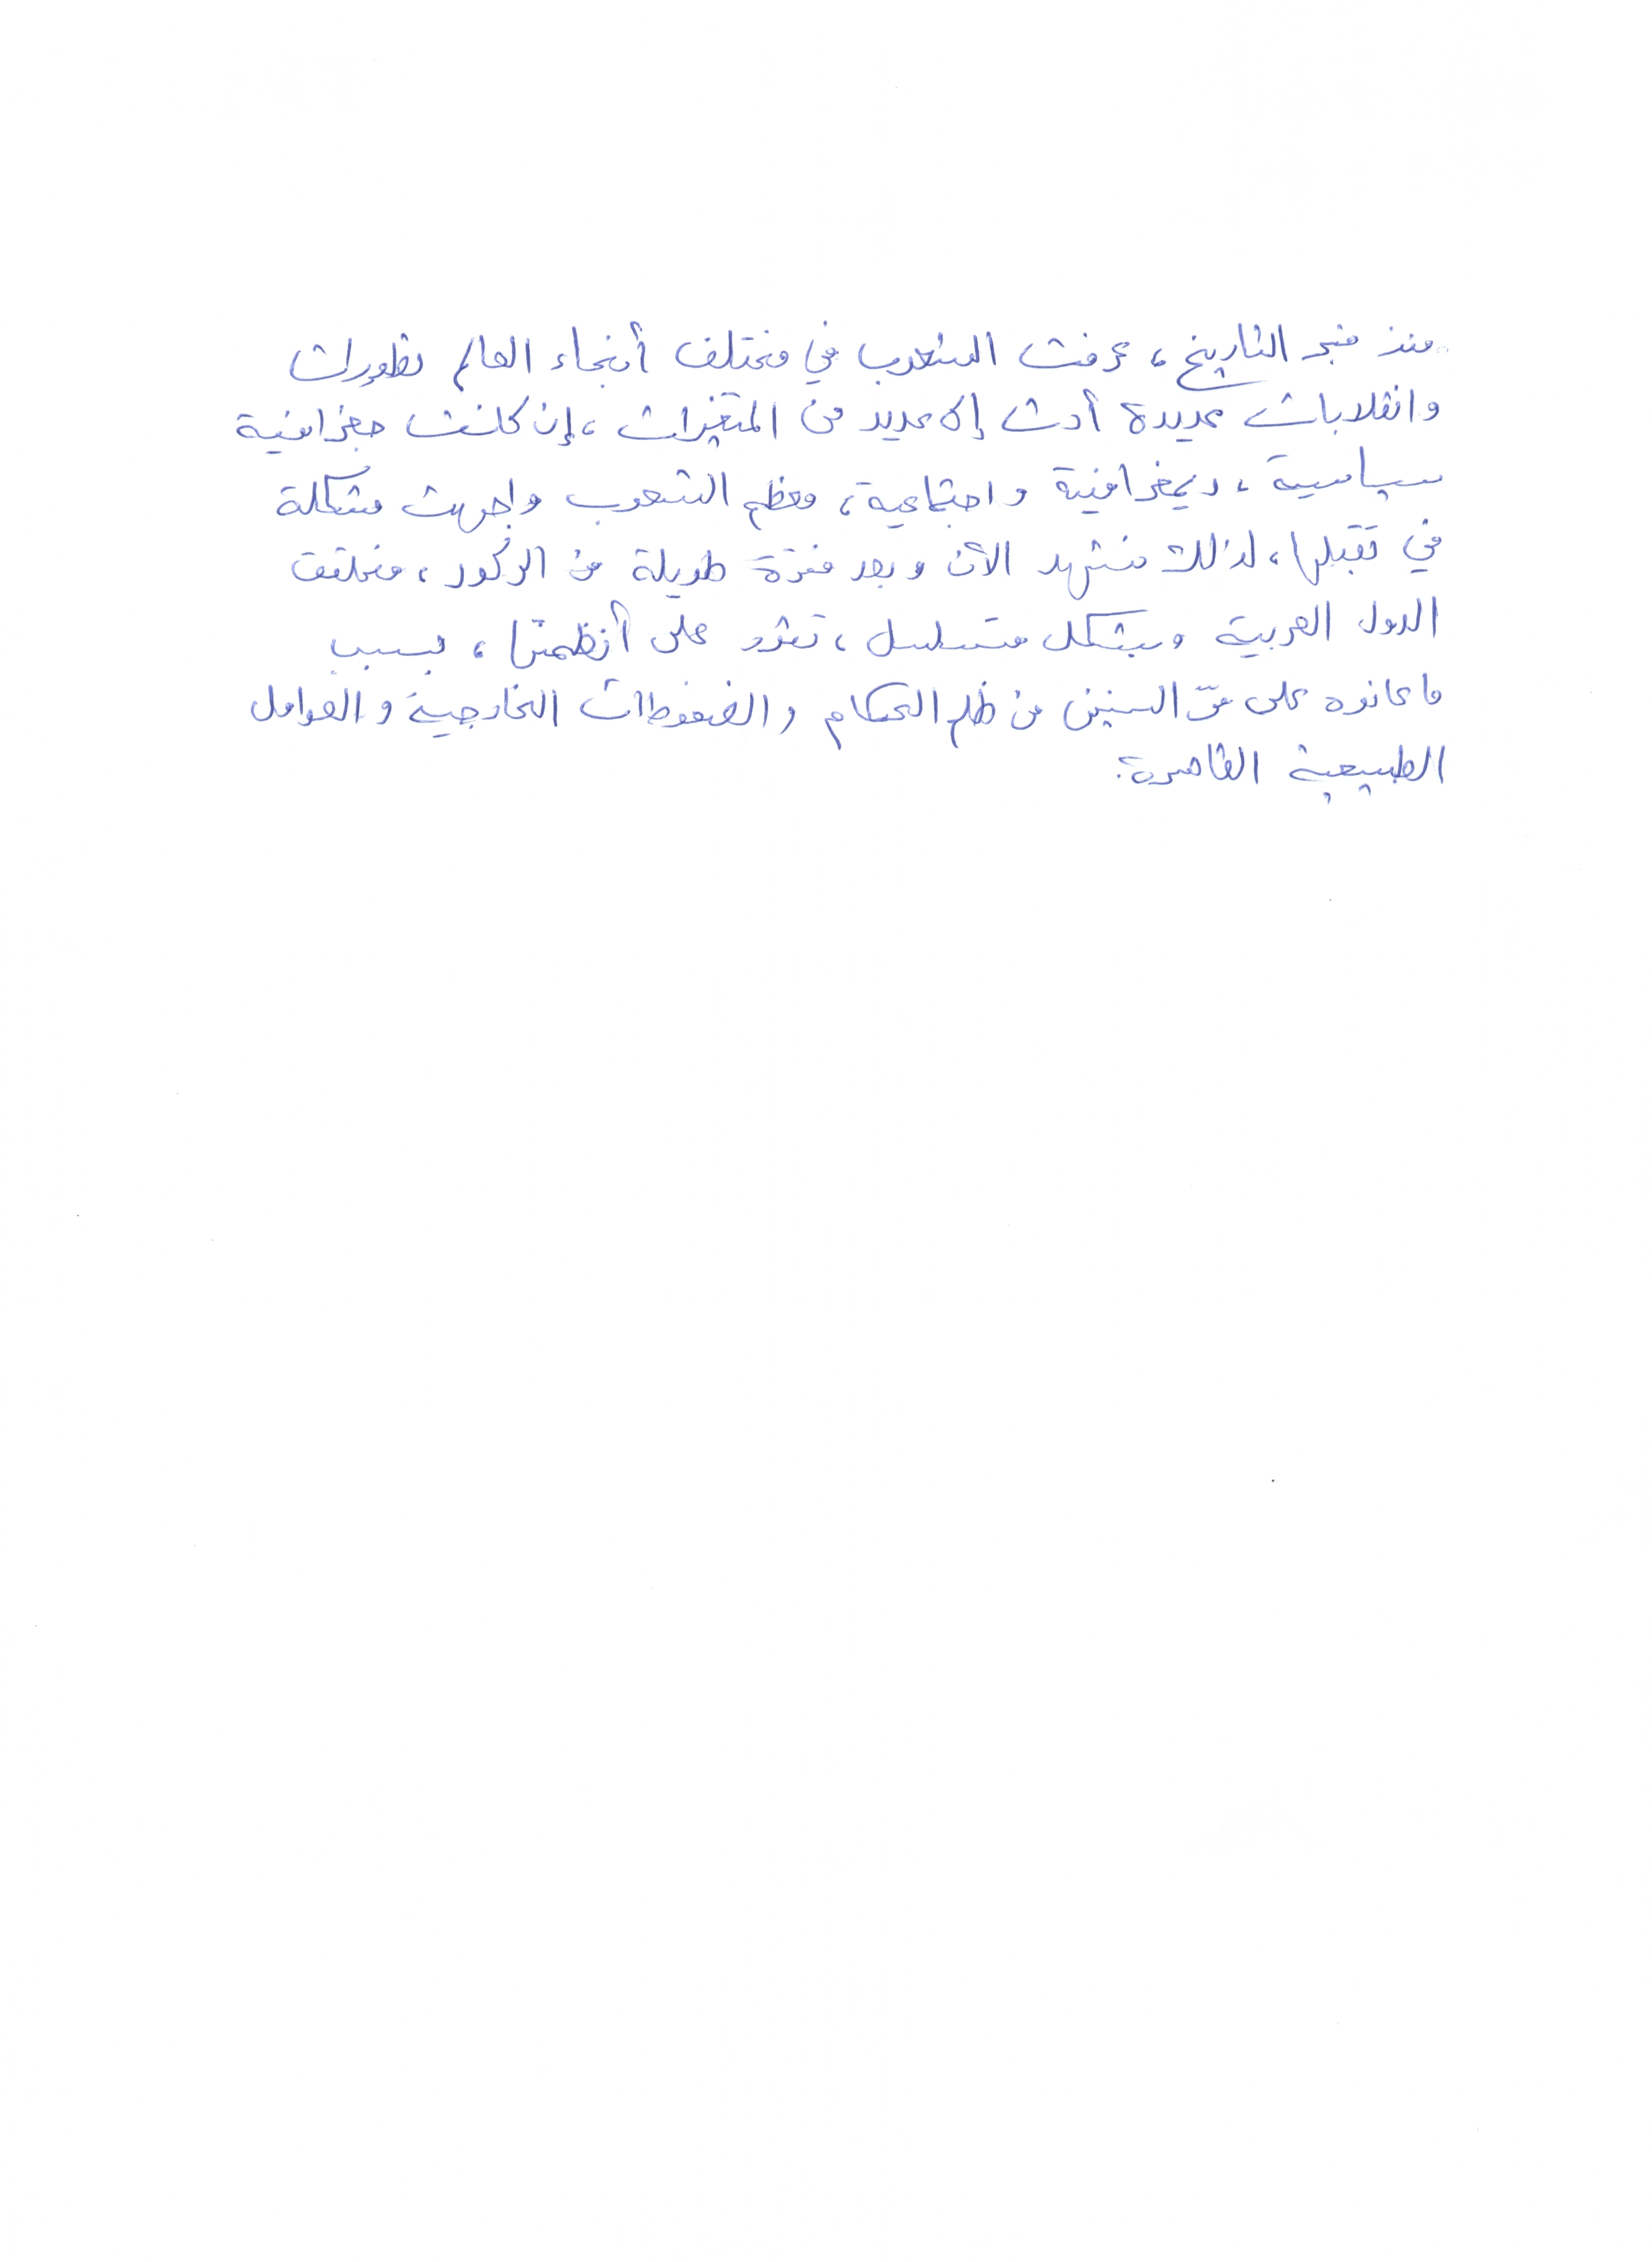 منذ فجر التاريخ، عرفت الشعوب في مختلف أنحاء العالم تطورات
وانقلابات عديدة أدت إلى عديد من المتغيرات، إن كانت جغرافية
سياسية، ديمغرافية واجتماعية، معظم الشعوب واجهت مشكلة
في تقبلها، لذلك نشهد الآن وبعد فترة طويلة من الركود، مختلف
الدول العربية وبشكل متسلسل، تثور على أنظمتها، بسبب
ما عانوه على مرّ السنين من ظلم الحكام والضغوطات الخارجية والعوامل
الطبيعية القاهرة.